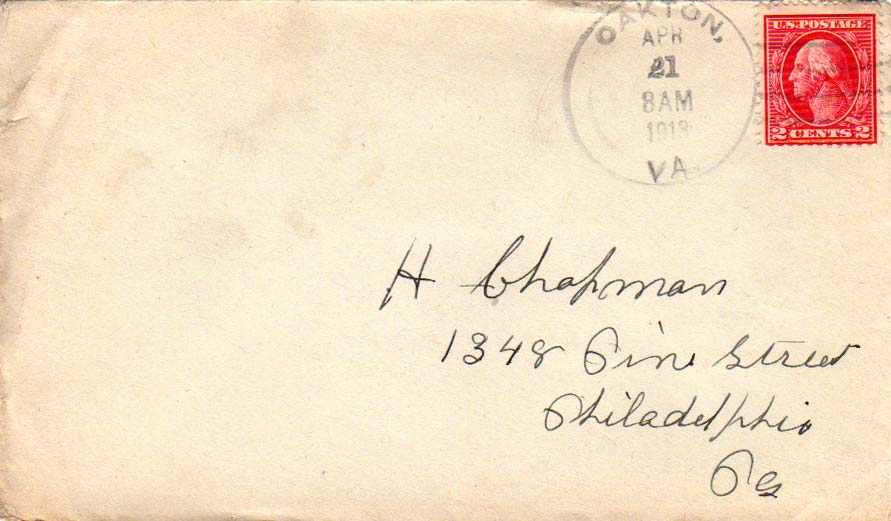 OAKTON,
APR
21
8AM
1913
VA.
U.S. POSTAGE
2 CENTS 2
H Chapman
1348 Pine Street
Philadelphia
Pa